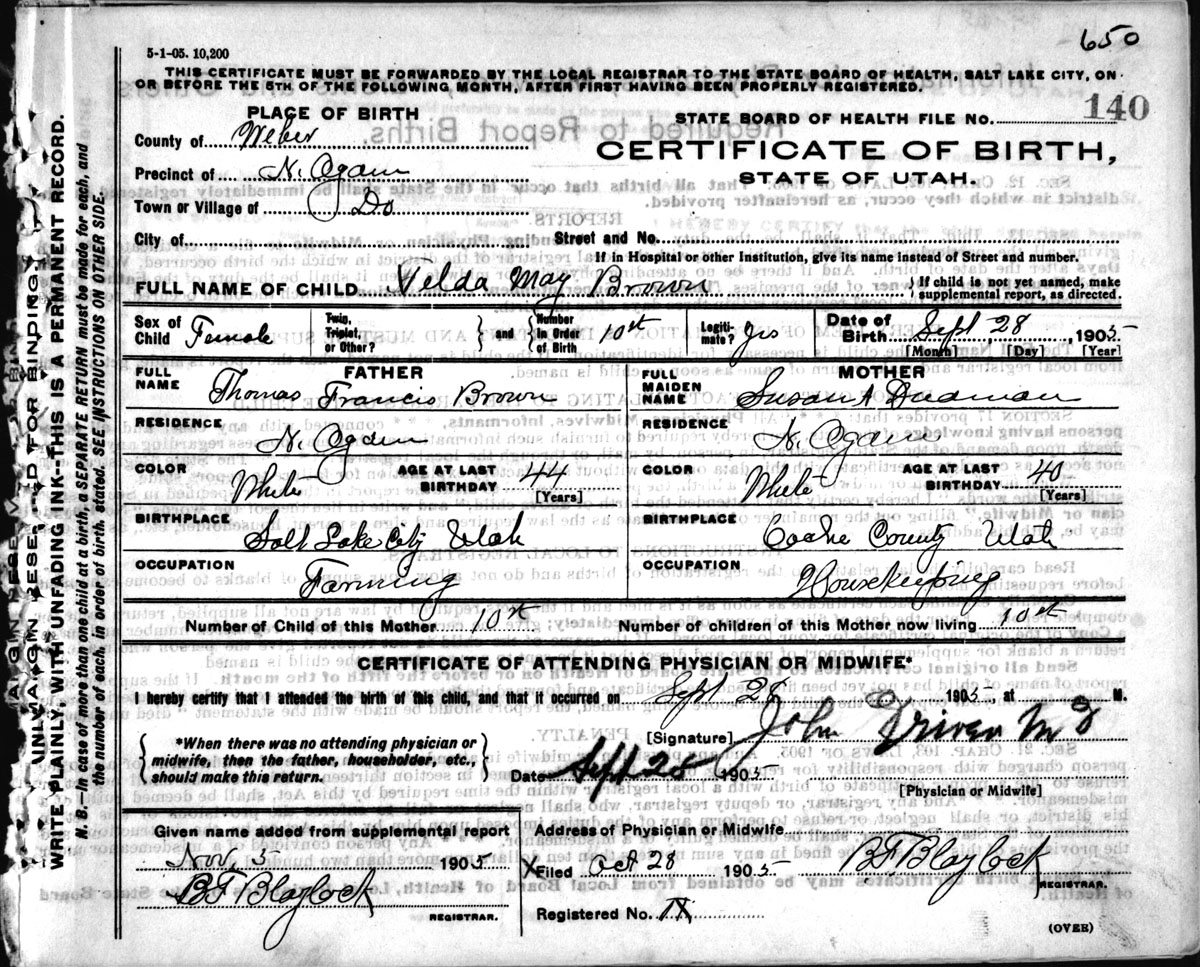 650
5-1-05. 10,200
THIS CERTIFICATE MUST BE FORWARDED BY THE LOCAL REGISTRAR TO THE STATE BOARD OF HEALTH, SALT LAKE CITY, ON
OR BEFORE THE 5TH OF THE FOLLOWING MONTH, AFTER FIRST HAVING BEEN PROPERLY REGISTERED.
PLACE OF BIRTH
STATE BOARD OF HEALTH FILE No. 140
County of Weber
CERTIFICATE OF BIRTH,
Precinct of N. Ogden
STATE OF UTAH.
Town or Village of Do
City of Street and No.
If in Hospital or other Institution, give its name instead of Street and number.
FULL NAME OF CHILD Velda May Brown { If child is not yet named, make supplemental report, as directed.
Sex of Child Female Twin, Triplet, or Other? } and { Number in Order of Birth 10th Legiti-mate? yes Date of Birth Sept 28, 1905
[Month] [Day] [Year]
FATHER
FULL NAME Thomas Francis Brown
RESIDENCE
N. Ogden
COLOR White AGE AT LAST BIRTHDAY 44
[Years]
BIRTHPLACE
Salt Lake City Utah
OCCUPATION
Farming
MOTHER
FULL MAIDEN NAME Susan A
RESIDENCE
N. Ogden
COLOR White AGE AT LAST BIRTHDAY 40
[Years]
BIRTHPLACE
Cache County Utah
OCCUPATION
Housekeeping
Number of Child of this Mother 10th Number of children of this Mother now living 10th
CERTIFICATE OF ATTENDING PHYSICIAN OR MIDWIFE*
I hereby certify that I attended the birth of this child, and that it occurred on Sept 28 1905 at M.
{ *When there was no attending physician or midwife, then the father, householder, etc., should make this return. }
[Signature] John M D
Date Sept 28 1905
[Physician or Midwife]
Given name added from supplemental report
Nov. 5 1905
B F Blaylock
REGISTRAR.
Address of Physician or Midwife
X Filed Oct 28 1905 B F Blaylock
REGISTRAR.
Registered No. IX
(OVER)
WRITE PLAINLY, WITH UNFADING INK--THIS IS A PERMANENT RECORD.
N. B.—In case of more than one child at a birth, a SEPARATE RETURN must be made for each, and
the number of each, in order of birth, stated. SEE INSTRUCTIONS ON OTHER SIDE.